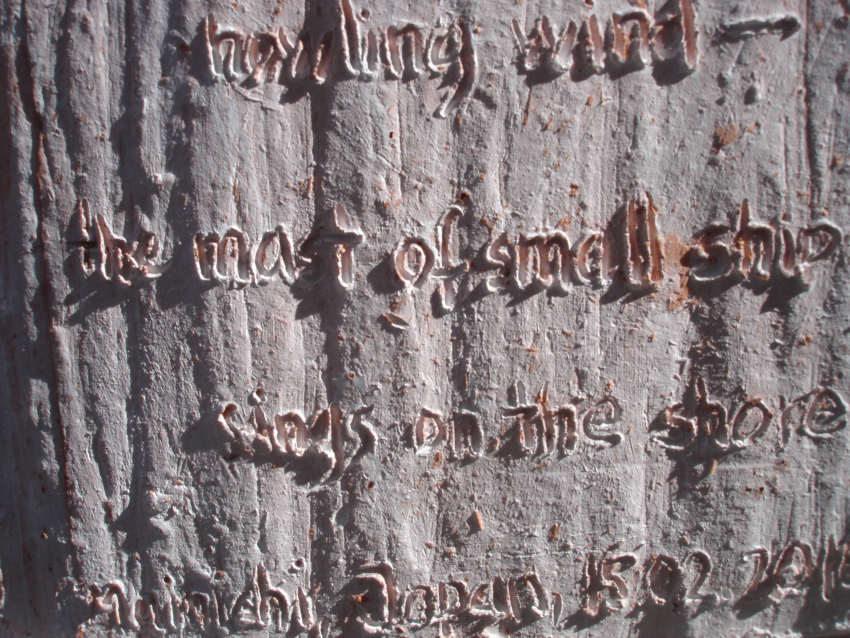 howling wind —
the mast of small ship
sings on the shore
Mainichi, Japan, 15.02.2018